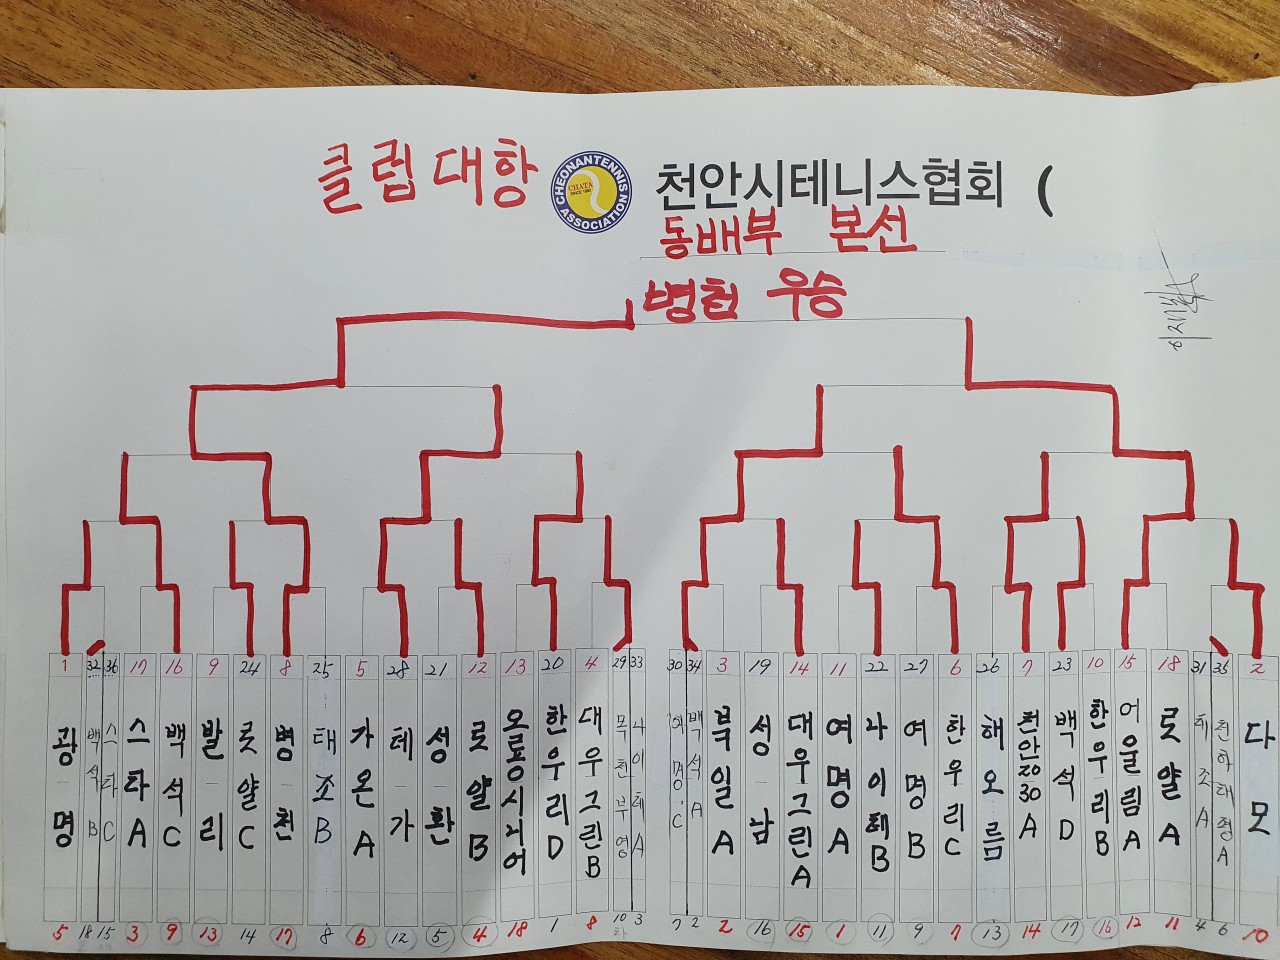 클럽대항 CHEONAN TENNIS ASSOCIATION CHATA SINCE 1980 천안시테니스협회 (
동배부 본선
병천 우승
1 32 36 17 16 9 24 8 25 5 28 21 12 13 20 4 29 33 30 34 3 19 14 11 22 27 6 26 7 23 10 15 18 31 35 2
광명
백석B
스타C
스타A
백석C
발리
롯얄C
병천
태조B
가온A
테가
성환
롯얄B
오룡시니어
한우리D
대우그린B
목천부영
나이테A
여명C
백석A
북일A
성남
대우그린A
여명A
나이테B
여명B
한우리C
해오름
천안2030A
백석D
한우리B
어울림A
롯얄A
태조A
천하태평A
다모
5 18 15 3 9 13 14 17 8 6 12 5 4 18 1 8 10 3 7 2 2 16 15 1 11 9 7 13 14 17 16 12 11 4 6 10